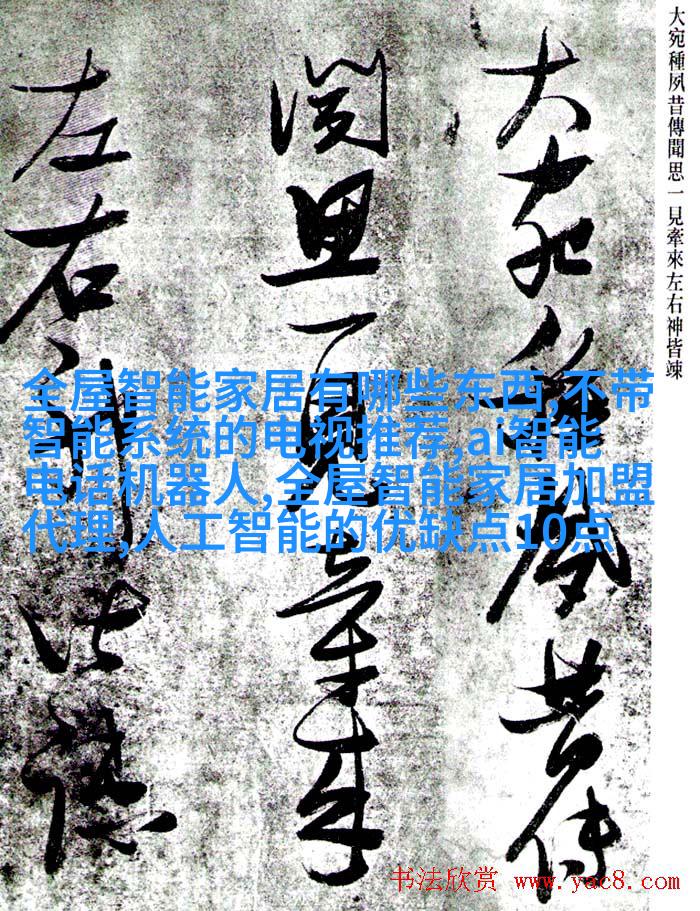 大宛種夙昔傳聞思一見牽來左右神皆竦
大宛種夙昔傳
聞思一見牽来
左右神皆竦
全屋智能家居有哪些东西,不带
智能系统的电视推荐,ai智能
电话机器人,全屋智能家居加盟
代理,人工智能的优缺点10点
书法欣赏 www.yac8.com